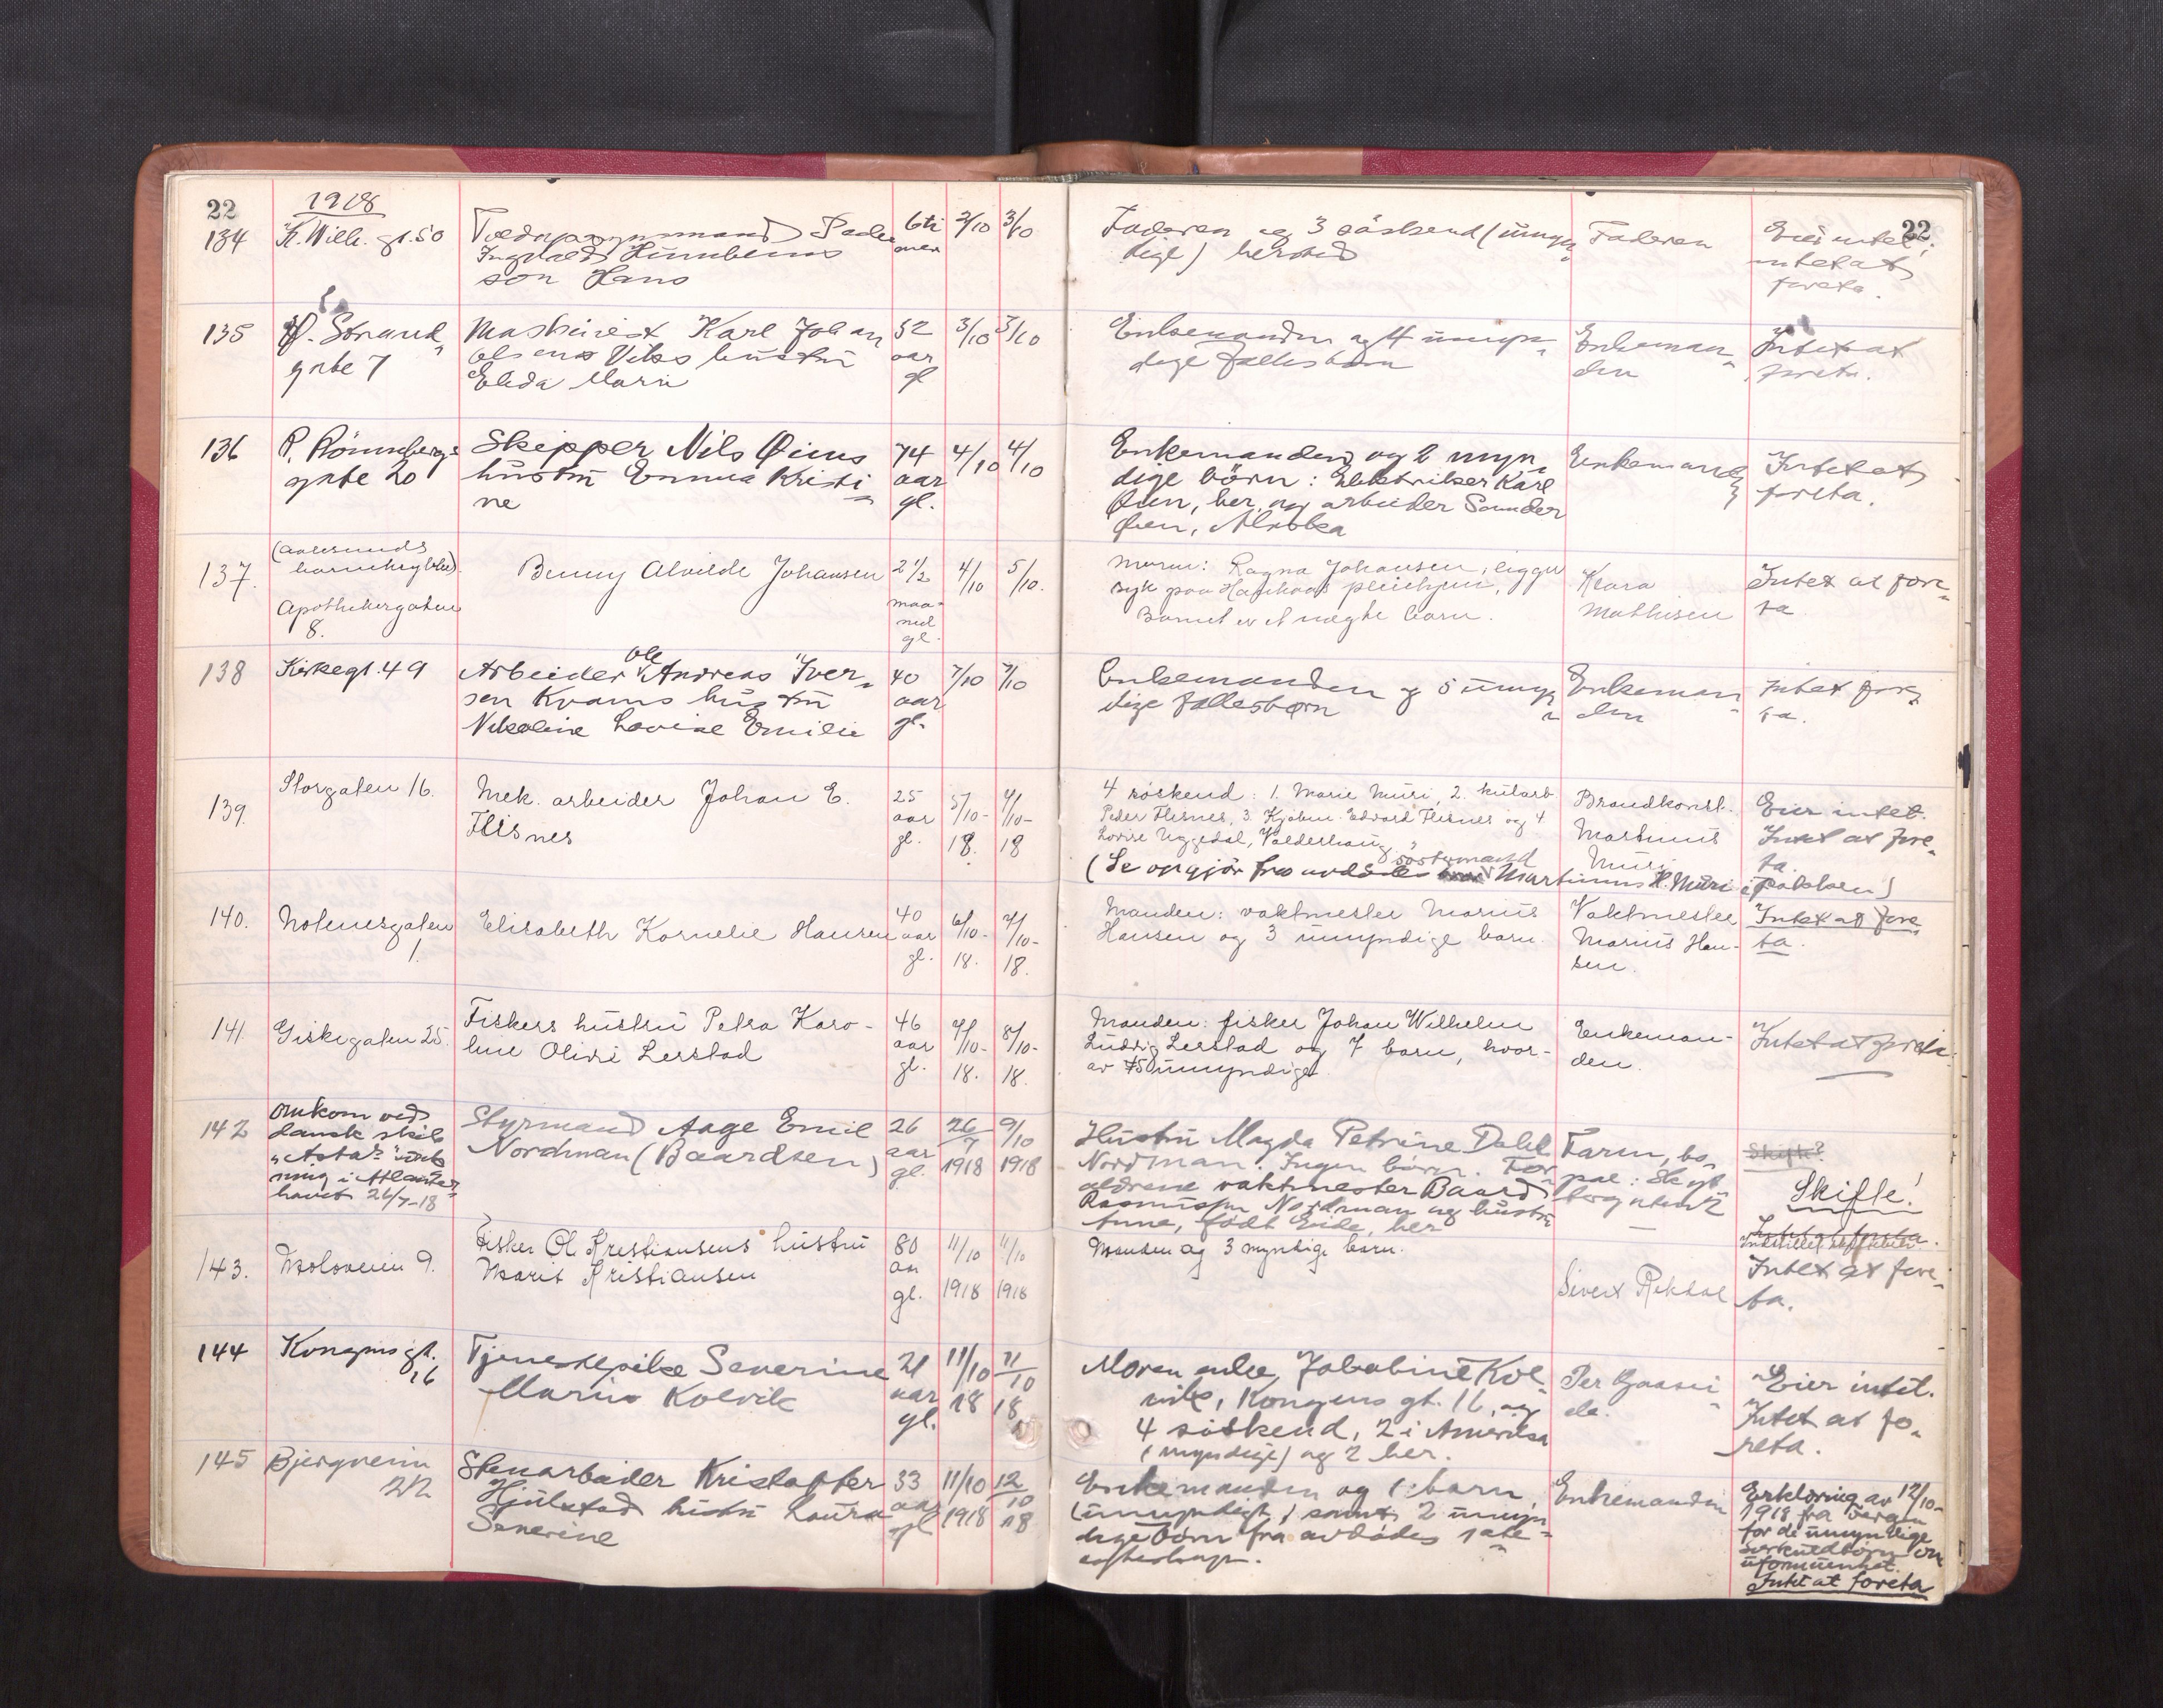 22
1918
134
K. Wilh. gt. 50
son Hans
6ti
2/10
3/10
Faderen og 3 söskend (umyn
dige) hersted
Faderen
22
Eier intet.
intet at
foreta.
135
Strand
gate 7
Maskinist Karl Johan
Olsens Viks hustru
Elida Marie
52
aar
gl
3/10
3/10
Enkemanden og 4 umyn
dige fællesbarn
Enkeman
den
Intet at
foreta.
136
R. Rönnebergs
gate 20
Skipper Nils Øiens
hustru Emma Kristi
ne
74
aar
gl.
4/10
4/10
Enkemanden og 2 myn
dige börn: Elektriker Karl
Øien, her, og arbeider Sander
Øien, Alaska
Enkemanden
Intet at
foreta.
137.
(Aalesunds
Apothekergaten
8.
Benny Alvilde Johansen
2 1/2
maa-
ned
gl.
4/10
5/10.
Moren: Ragna Johansen, ligger
syk paa pleiehjem,
Barnet er et uægte barn.
Klara
Mathisen
Intet at fore
ta
138
Kirkegt. 49
Arbeider Ole Andreas Iver-
sen Kvams hustru
Nikoline Lovise Emilie
40
aar
gl.
7/10
7/10
Enkemanden og 5 umyn
dige fællesbørn
Enkeman
den
Intet fore
ta.
139.
Storgaten 16.
Mek. arbeider Johan E.
Flisnes
25
aar
gl.
5/10-
18.
4/10-
18
4 söskend: 1. Marie Muri, 2. kularb.
Peder Flisnes, 3. Kjöbm. Edvard Flisnes og 4
Lovise Uggedal, Valderhaug.
Brandkonst.
Martinus
Muri
Eier intet.
Intet at fore
ta.
(Se opgjör fra avdödes söstermand Martinus K. Muri i pakken)
140.
Molovesgaten
1.
Elisabeth Kornelie Hansen
40
aar
gl.
6/10-
18.
7/10-
18.
Manden: vaktmester Marius
Hansen og 3 umyndige barn.
Vaktmester
Marius Han-
sen.
Intet at fore
ta.
141.
Giskegaten 25.
Fiskers hustru Petra Karo-
line Olivie Lerstad
46
aar
gl.
7/10-
18.
8/10-
18.
Manden: fisker Johan Wilhelm
Ludvig Lerstad og 7 barn, hvor-
av 5 umyndige.
Enkeman-
den.
Intet at foreta.
142
Omkom ved
dansk skib
"Asta"s
ning i Atlanter
havet 26/7-18
Styrmand Aage Emil
Nordman (Baardsen)
26
aar
gl.
26/7
1918
9/10
1918
Hustru Magda Petrine Dahl
Nordman. Ingen börn. For
ældrene vaktmester Baard
Rasmussen Nordman og hustru
Anne, født Eide, her
Skifte?
Skifte!
143.
Moloveien 9.
Fisker Ol Kristiansens hustru
Marit Kristiansen
80
aar
gl.
11/10
1918
11/10
1918
Manden og 3 myndige barn.
Sivert Rekdal
Intet at fore
ta.
144
Kongens gt.
16
Tjenestepike Severine
Marie Kolvik
21
aar
gl.
11/10
18
11/10
18
Moren enke Jakobine Kol
vik, Kongens gt. 16, og
4 söskend, 2 i Amerika
(myndige) og 2 her.
Eier intet.
Intet at fo
reta.
145
Bjergveien
Stenarbeider Kristoffer
Hjulstad hustru Laura
Severine
33
aar
gl
11/10
1918
12/10
18
Enkemanden og 1 barn,
(umyndigt) samt 2 umyn
dige börn fra avdödes 1ste
egteskap.
Enkemanden
Erklæring av 12/10
1918 fra vergen
for de umyndige
særkuldbörn om
uformuenhet.
Intet at foreta